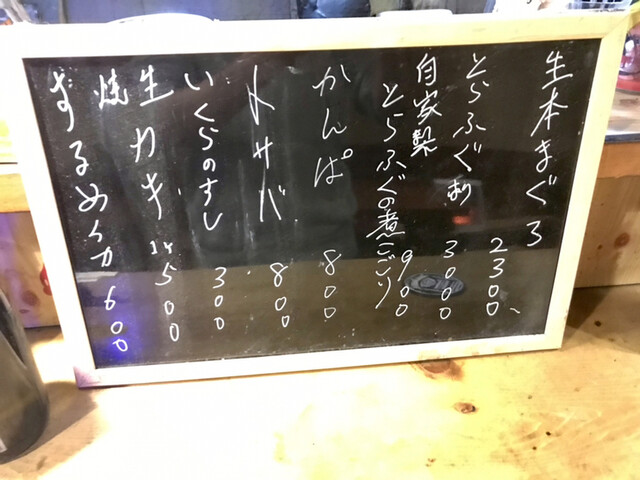 生本まぐろ 2300
とらふぐ刺 3000
自家製
とらふぐの煮こごり 900
かんぱ 800
〆サバ 800
いくらのすし 300
生カキ 1ケ 500
焼
するめイカ 600